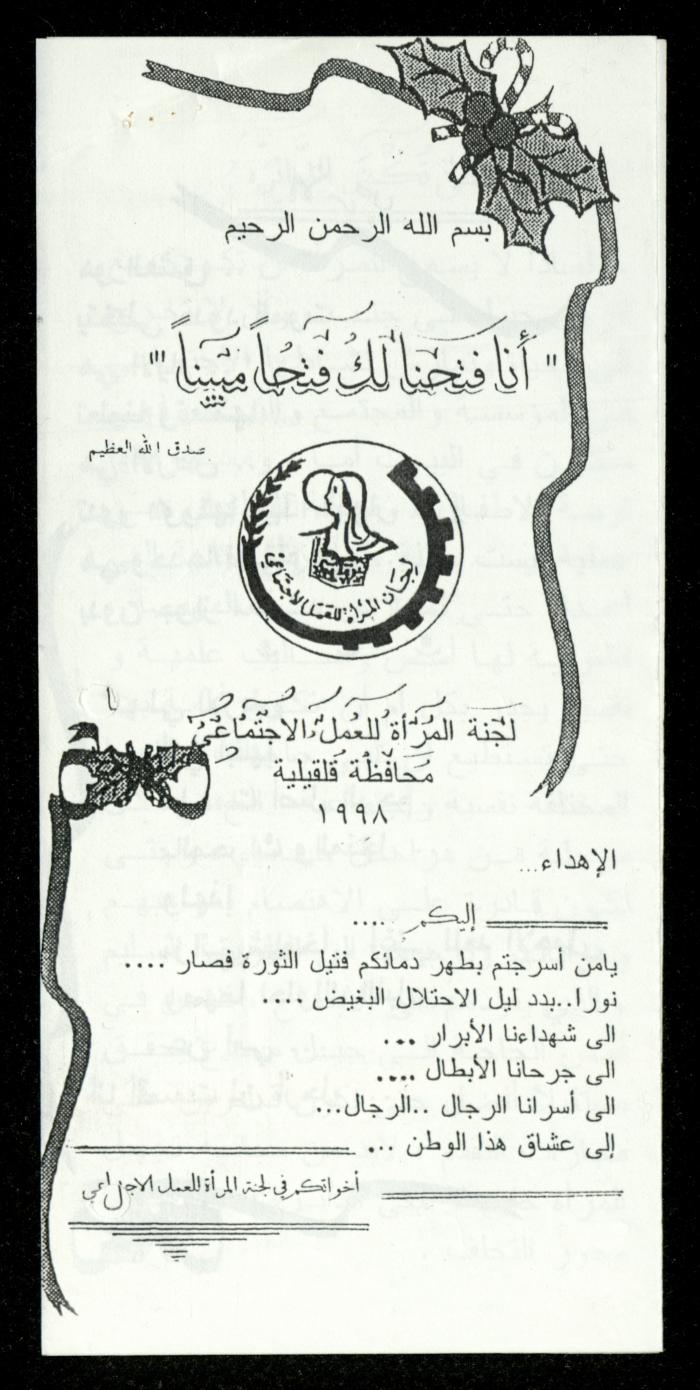 بسم الله الرحمن الرحيم
" أنا فتحنا لك فتحاً مبيناً "
صدق الله العظيم
لجان المرأة للعمل الاجتماعي
لجنة المرأة للعمل الاجتماعي
محافظة قلقيلية
١٩٩٨
الإهداء...
إليكم ....
يامن أسرجتم بطهر دمائكم فتيل الثورة فصار ....
نورا..يبدد ليل الاحتلال البغيض ....
الى شهداءنا الأبرار ...
الى جرحانا الأبطال ....
الى أسرانا الرجال ..الرجال...
إلى عشاق هذا الوطن ...
أخواتكم في لجنة المرأة للعمل الاجتماعي